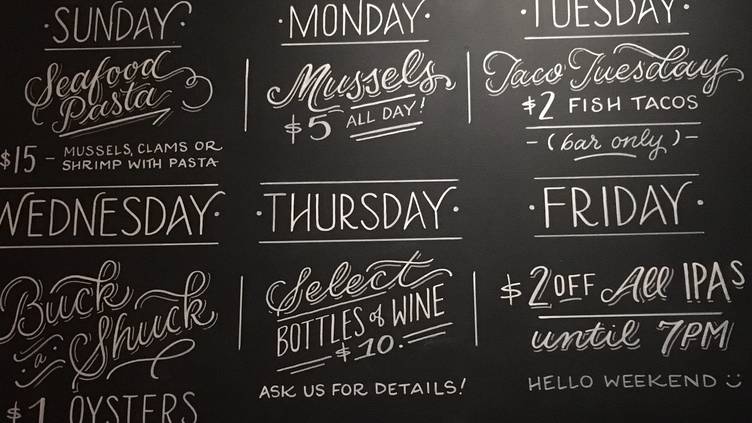 ·SUNDAY·
Seafood
Pasta
$15 - MUSSELS, CLAMS OR
SHRIMP WITH PASTA
·MONDAY·
Mussels
$5 ALL DAY!
·TUESDAY·
Taco Tuesday
$2 FISH TACOS
- (bar only) -
WEDNESDAY·
Buck
a Shuck
$1 OYSTERS
·THURSDAY·
Select
BOTTLES of WINE
$10.
ASK US FOR DETAILS!
·FRIDAY·
$2 OFF All IPAS
until 7PM
HELLO WEEKEND ☺